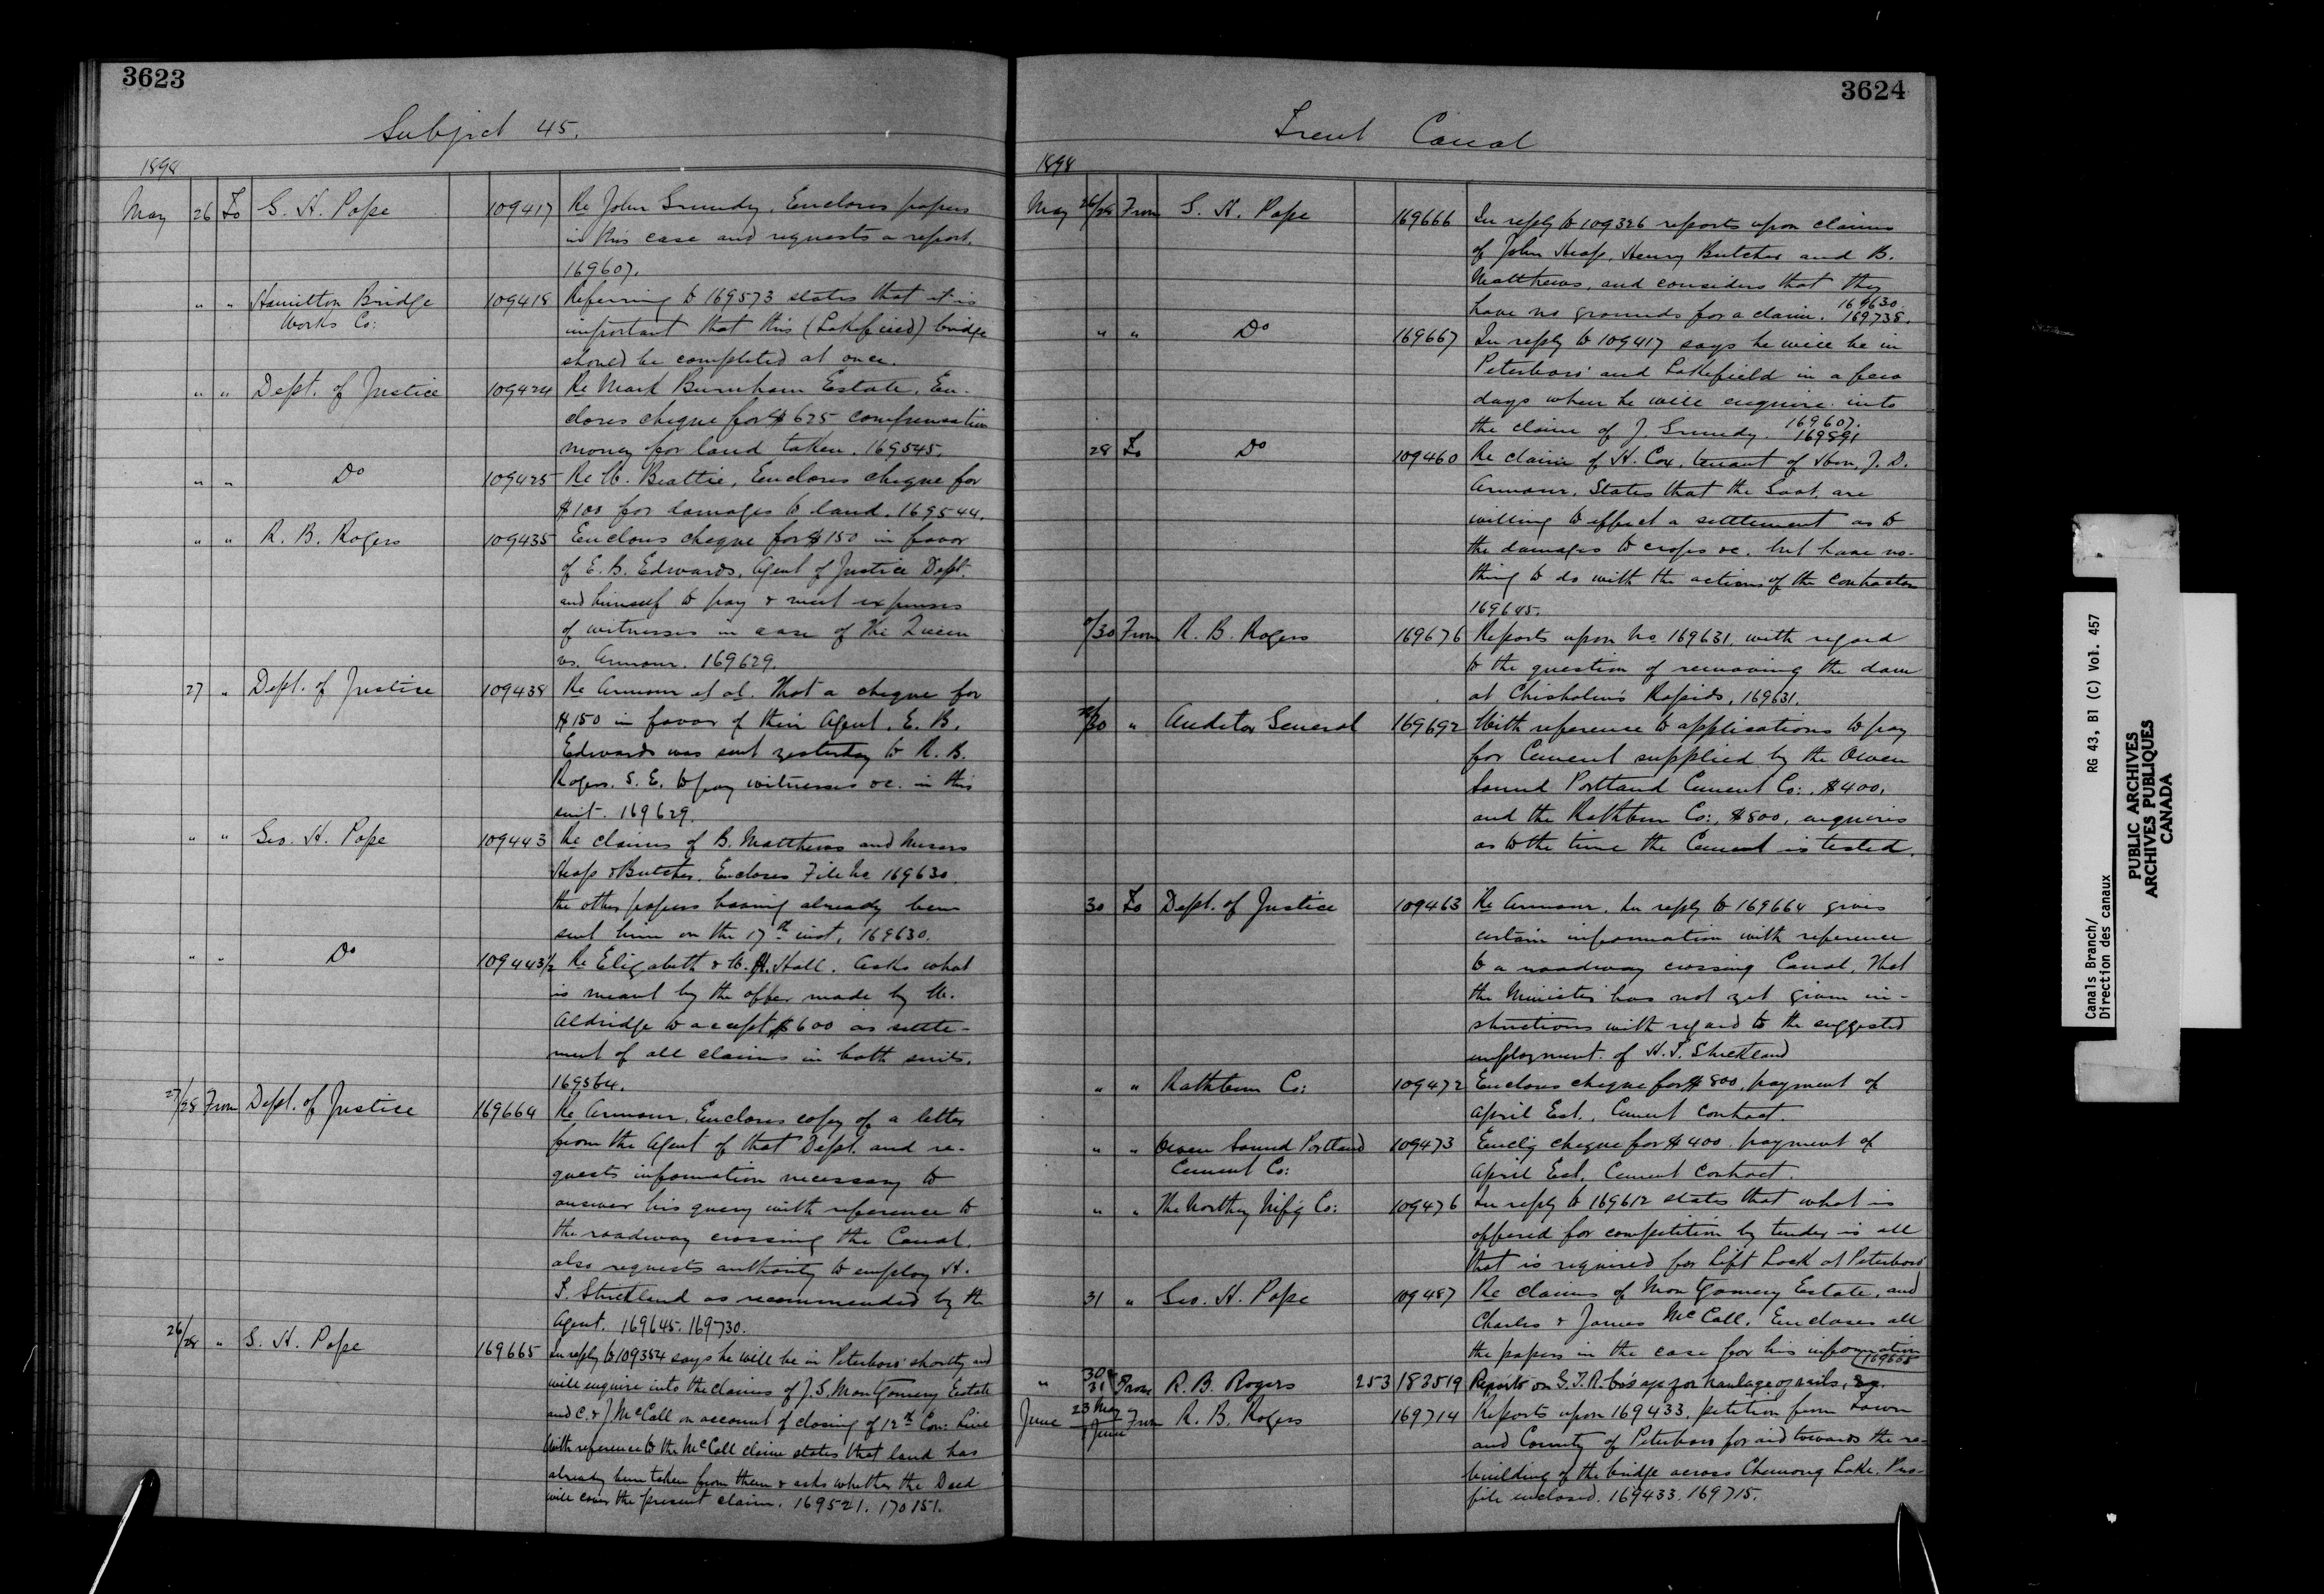 3623
Subject 45.
1898
May 26 To G. H. Pope 109417 Re John Grundy. Encloses papers
in this case and requests a report.
169607.
" " Hamilton Bridge 109418 Referring to 169573 states that it is
Works Co: important that this (Lakefield) bridge
should be completed at once.
" " Dept. of Justice 109424 Re Mark Burnham Estate. En-
closes cheque for $625 compensation
money for land taken. 169545.
" " Do 109425 Re W. Beattie, Encloses cheque for
$100 for damages to land. 169544.
" " R. B. Rogers 109435 Encloses cheque for $150 in favor
of E. B. Edwards, Agent of Justice Dept.
and himself to pay & meet expenses
of witnesses in case of the Queen
vs. Armour. 169629.
27 " Dept. of Justice 109438 Re Armour et al. That a cheque for
$150 in favor of their Agent. E. B.
Edwards was sent yesterday to R. B.
Rogers. S. E. to pay witnesses &c. in this
suit. 169629.
" " Geo. H. Pope 109443 Re claims of B. Matthews and Messrs
Heap & Butcher. Encloses File No 169630.
the other papers having already been
sent him on the 17th inst. 169630.
" " Do 109443½ Re Elizabeth & W. H. Hall. Asks what
is meant by the offer made by W.
Aldridge to accept $600 as settle-
ment of all claims in both suits.
169564.
27/28 From Dept. of Justice 169664 Re Armour. Encloses copy of a letter
from the Agent of that Dept. and re-
quests information necessary to
answer his query with reference to
the roadway crossing the Canal.
also requests authority to employ H.
T. Strickland as recommended by the
Agent. 169645. 169730.
26/28 " G. H. Pope 169665 In reply to 109354 says he will be in Peterboro' shortly and
will enquire into the claims of J. S. Montgomery Estate
and C. & J McCall on account of closing of 12th Con: Line
With reference to the McCall claim states that land has
already been taken from them & asks whether the Deed
will cover the present claim. 169521. 170151.
3624
Trent Canal
1898
May 26/28 From G. H. Pope 169666 In reply to 109326 reports upon claims
of John Heap, Henry Butcher and B.
Matthews, and considers that they
have no grounds for a claim. 169630. 169738.
" " Do 169667 In reply to 109417 says he will be in
Peterboro' and Lakefield in a few
days when he will enquire into
the claim of J. Grundy. 169607. 169891
28 To Do 109460 Re claim of H. Cox, tenant of Hon. J. D.
Armour. States that the Govt. are
willing to effect a settlement as to
the damages to crops &c. but have no-
thing to do with the actions of the contractor
169645.
/30 From R. B. Rogers 169676 Reports upon No 169631. with regard
to the question of removing the dam
at Chisholm's Rapids. 169631.
/30 " Auditor General 169692 With reference to applications to pay
for Cement supplied by the Owen
Sound Portland Cement Co:. $400.
and the Rathbun Co:, $800, enquires
as to the time the Cement is tested.
30 To Dept. of Justice 109463 Re Armour. In reply to 169664 gives
certain information with reference
to a roadway crossing Canal. That
the Minister has not yet given in-
structions with regard to the suggested
employment of H. T. Strickland
" " Rathbun Co: 109472 Encloses cheque for $800. payment of
April Est. Cement contract.
" " Owen Sound Portland 109473 Enclg cheque for $400 payment of
Cement Co: April Est. Cement Contract.
" " The Northey Mf'g Co: 109476 In reply to 169612 states that what is
offered for competition by tender is all
that is required for Lift Lock at Peterboro'
31 " Geo. H. Pope 109487 Re claims of Montgomery Estate, and
Charles & James McCall. Encloses all
the papers in the case for his information
169665
" 30/31 From R. B. Rogers 253 183519 Reports on G. T. R. Co's a/c for haulage of rails,
June 23 May/1 June From R. B. Rogers 169714 Reports upon 169433. petition from Town
and County of Peterboro for aid towards the re-
building of the bridge across Chemong Lake. Pro-
file enclosed. 169433. 169715.
Canals Branch/ RG 43, B1 (C) Vol. 457
Direction des canaux
PUBLIC ARCHIVES
ARCHIVES PUBLIQUES
CANADA